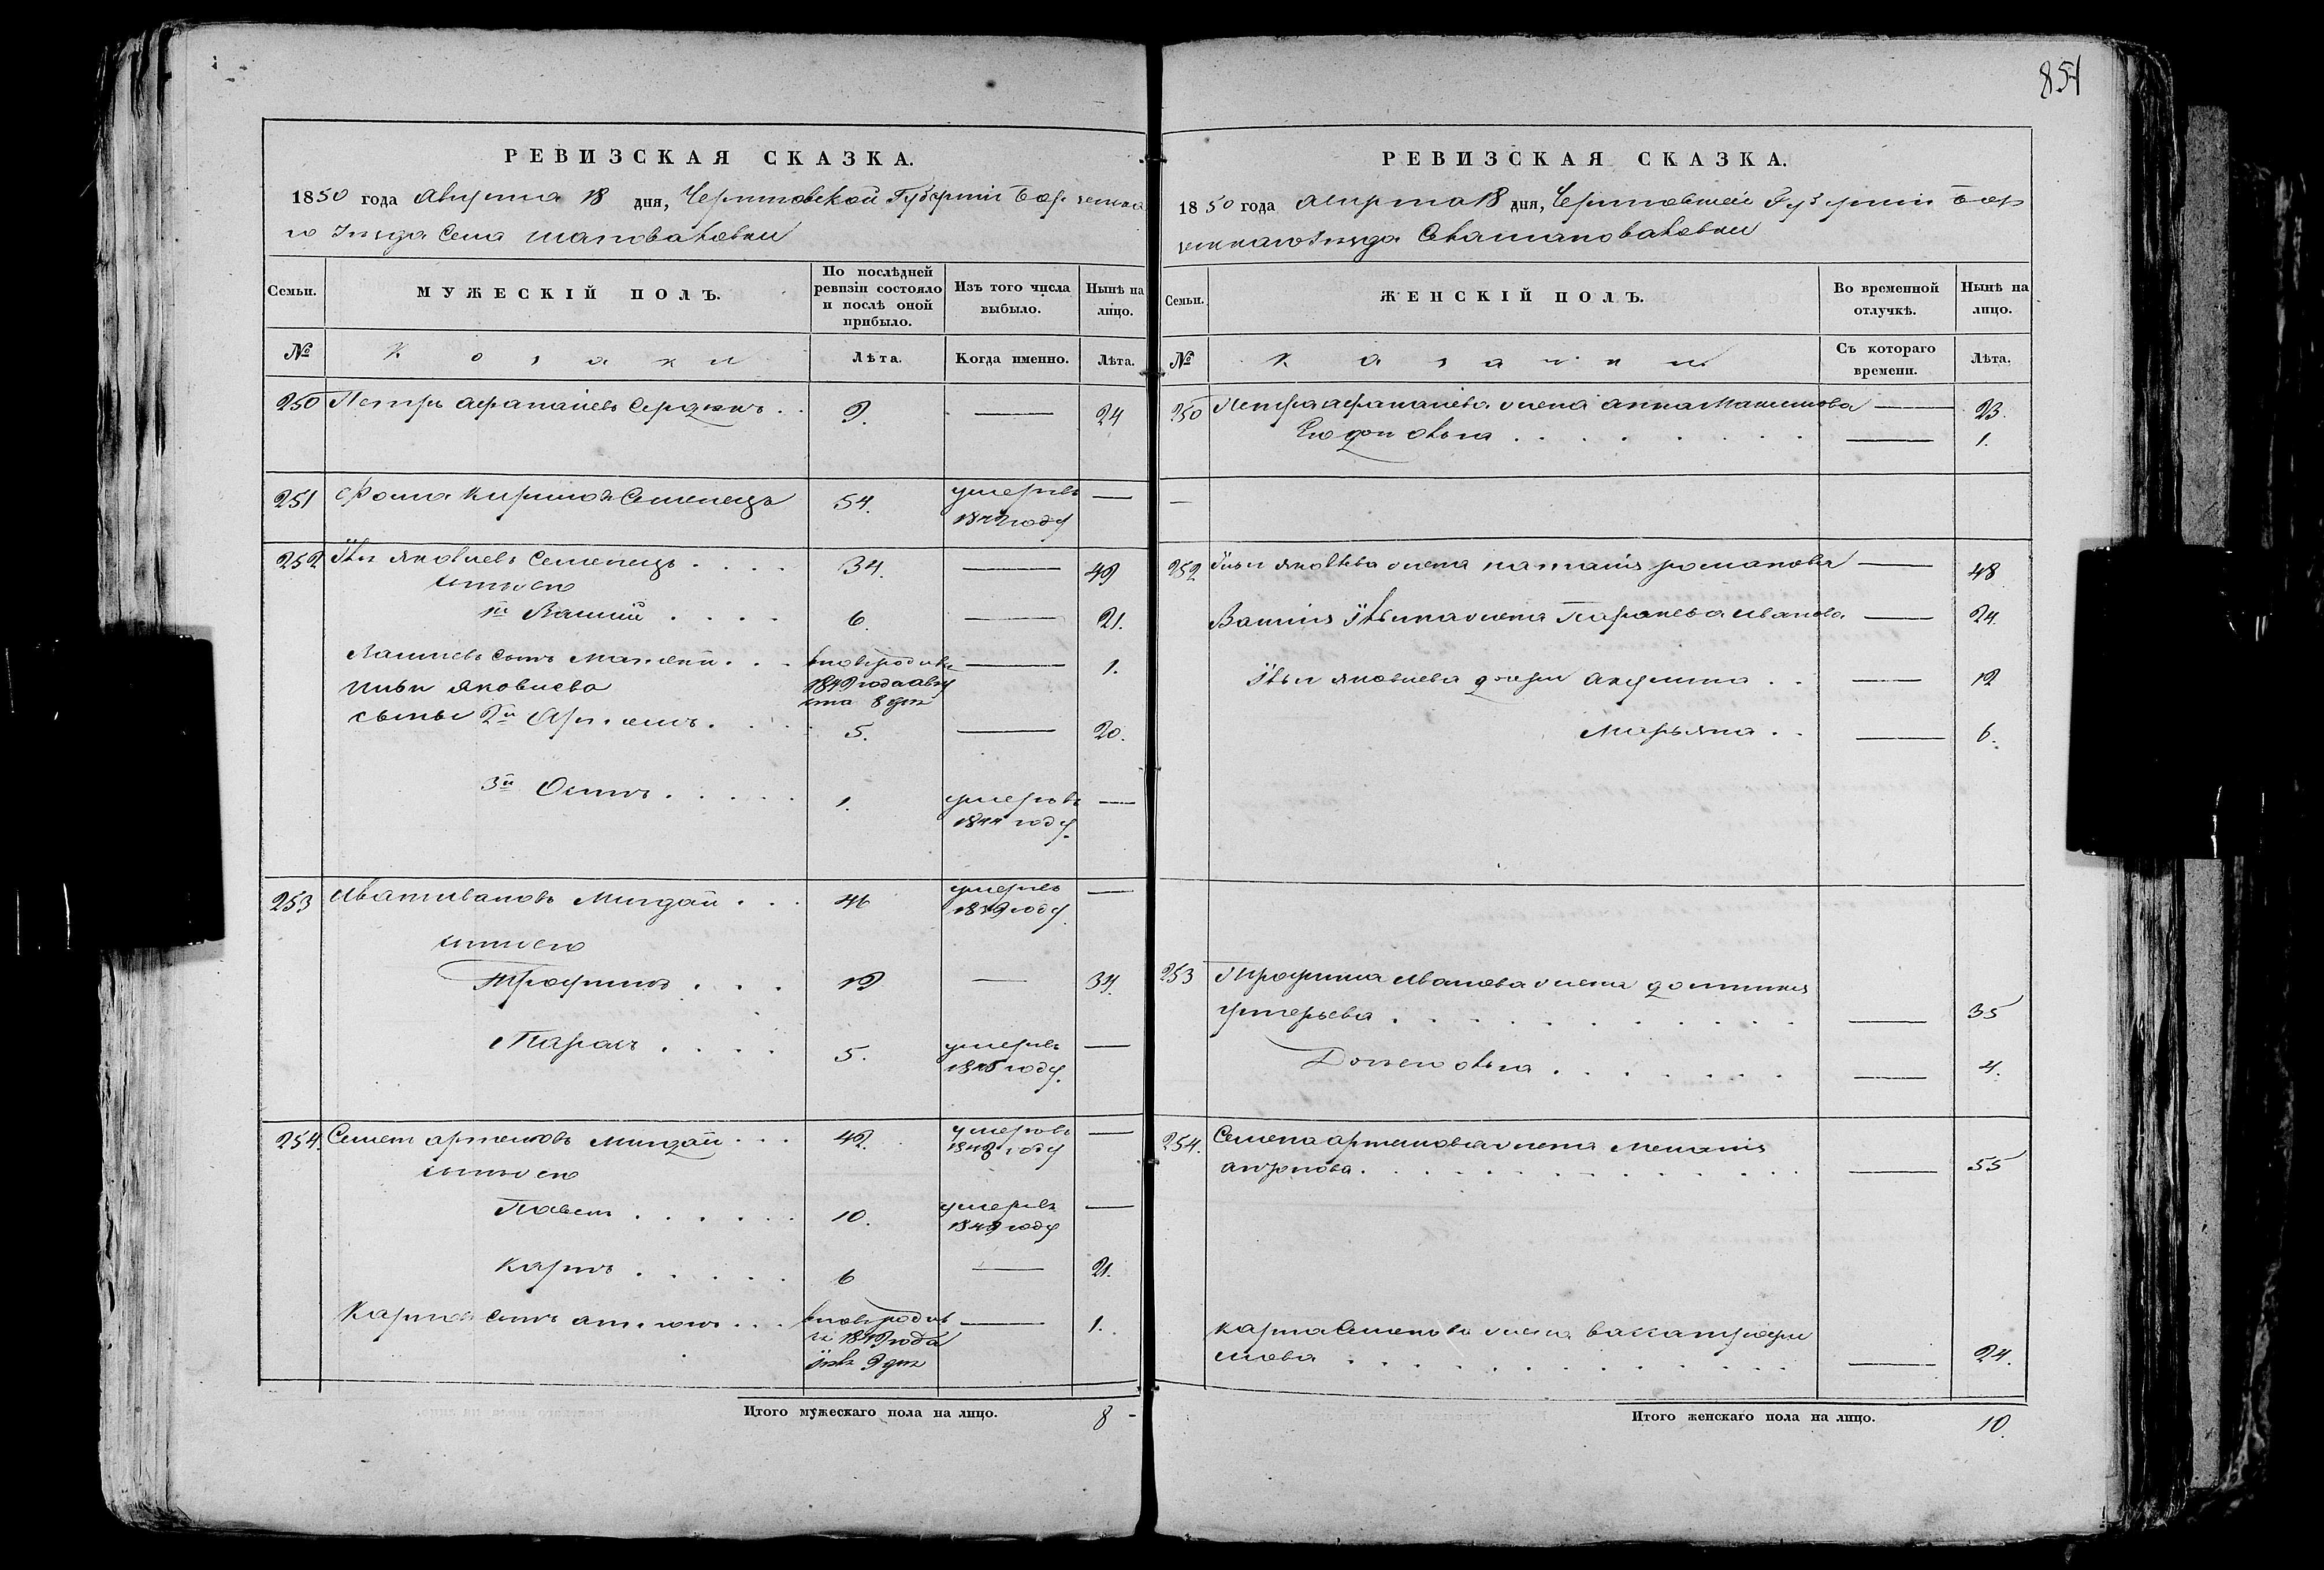 851
РЕВИЗСКАЯ СКАЗКА.
1850 года Августа 18 дня, Черниговской Губерніи Борзенска
го Уезда Села Шаповаловки
Семьи.
МУЖЕСКІЙ ПОЛЪ.
По послѣдней
ревизіи состояло
и послѣ оной
прибыло.
Изъ того числа
выбыло.
Нынѣ на
лицо.
№
Козаки
Лѣта.
Когда именно.
Лѣта.
250 Петръ Афанасіевъ 9. — 24
251 Фома Кириловъ Семенецъ 54. умеръ въ —
году
252 Яковлевъ Семенецъ 34. — 49
сыны его
1й Василій 6. — 21.
Василіевъ сынъ вновь родивс — 1.
Яковлева 1849 года авгу
ста 8 дня
сыны 2й Артемъ 5. — 20.
3й Осипъ 1. умеръ въ —
1844 году.
253 Иванъ Ивановъ Миндай 46 умеръ въ —
году
сыны его
Трофимъ 19 — 34.
Тарасъ 5. умеръ въ —
году.
254. Семенъ Артемовъ Миндай 42. умеръ въ —
1848 году
сыны его
Павелъ 10. умеръ въ —
1849 году
Карпъ 6 — 21.
Карповъ сынъ вновь родив — 1.
ся 1849 года
9 дня
Итого мужескаго пола на лицо. 8
РЕВИЗСКАЯ СКАЗКА.
1850 года Августа 18 дня, Черниговской Губерніи Бор
зенскаго Уезда Села Шаповаловки
Семьи.
ЖЕНСКІЙ ПОЛЪ.
Во временной
отлучкѣ.
Нынѣ на
лицо.
№
Казачки
Съ котораго
времени.
Лѣта.
250 Петра Афанасіева жена Анна Максимова — 23.
Его дочь — 1.
—
252 Яковлева жена Наталія Романова — 48
Василія жена Параскева Иванова — 24.
Яковлева дочери Акулина — 12
Марьяна — 6.
253 Трофима Иванова жена Домникія
— 35
Дочь его — 4.
254. Семена Артемова жена Меланія
— 55
Карпа Семенова жена Васса Трофи
мова — 24.
Итого женскаго пола на лицо. 10.